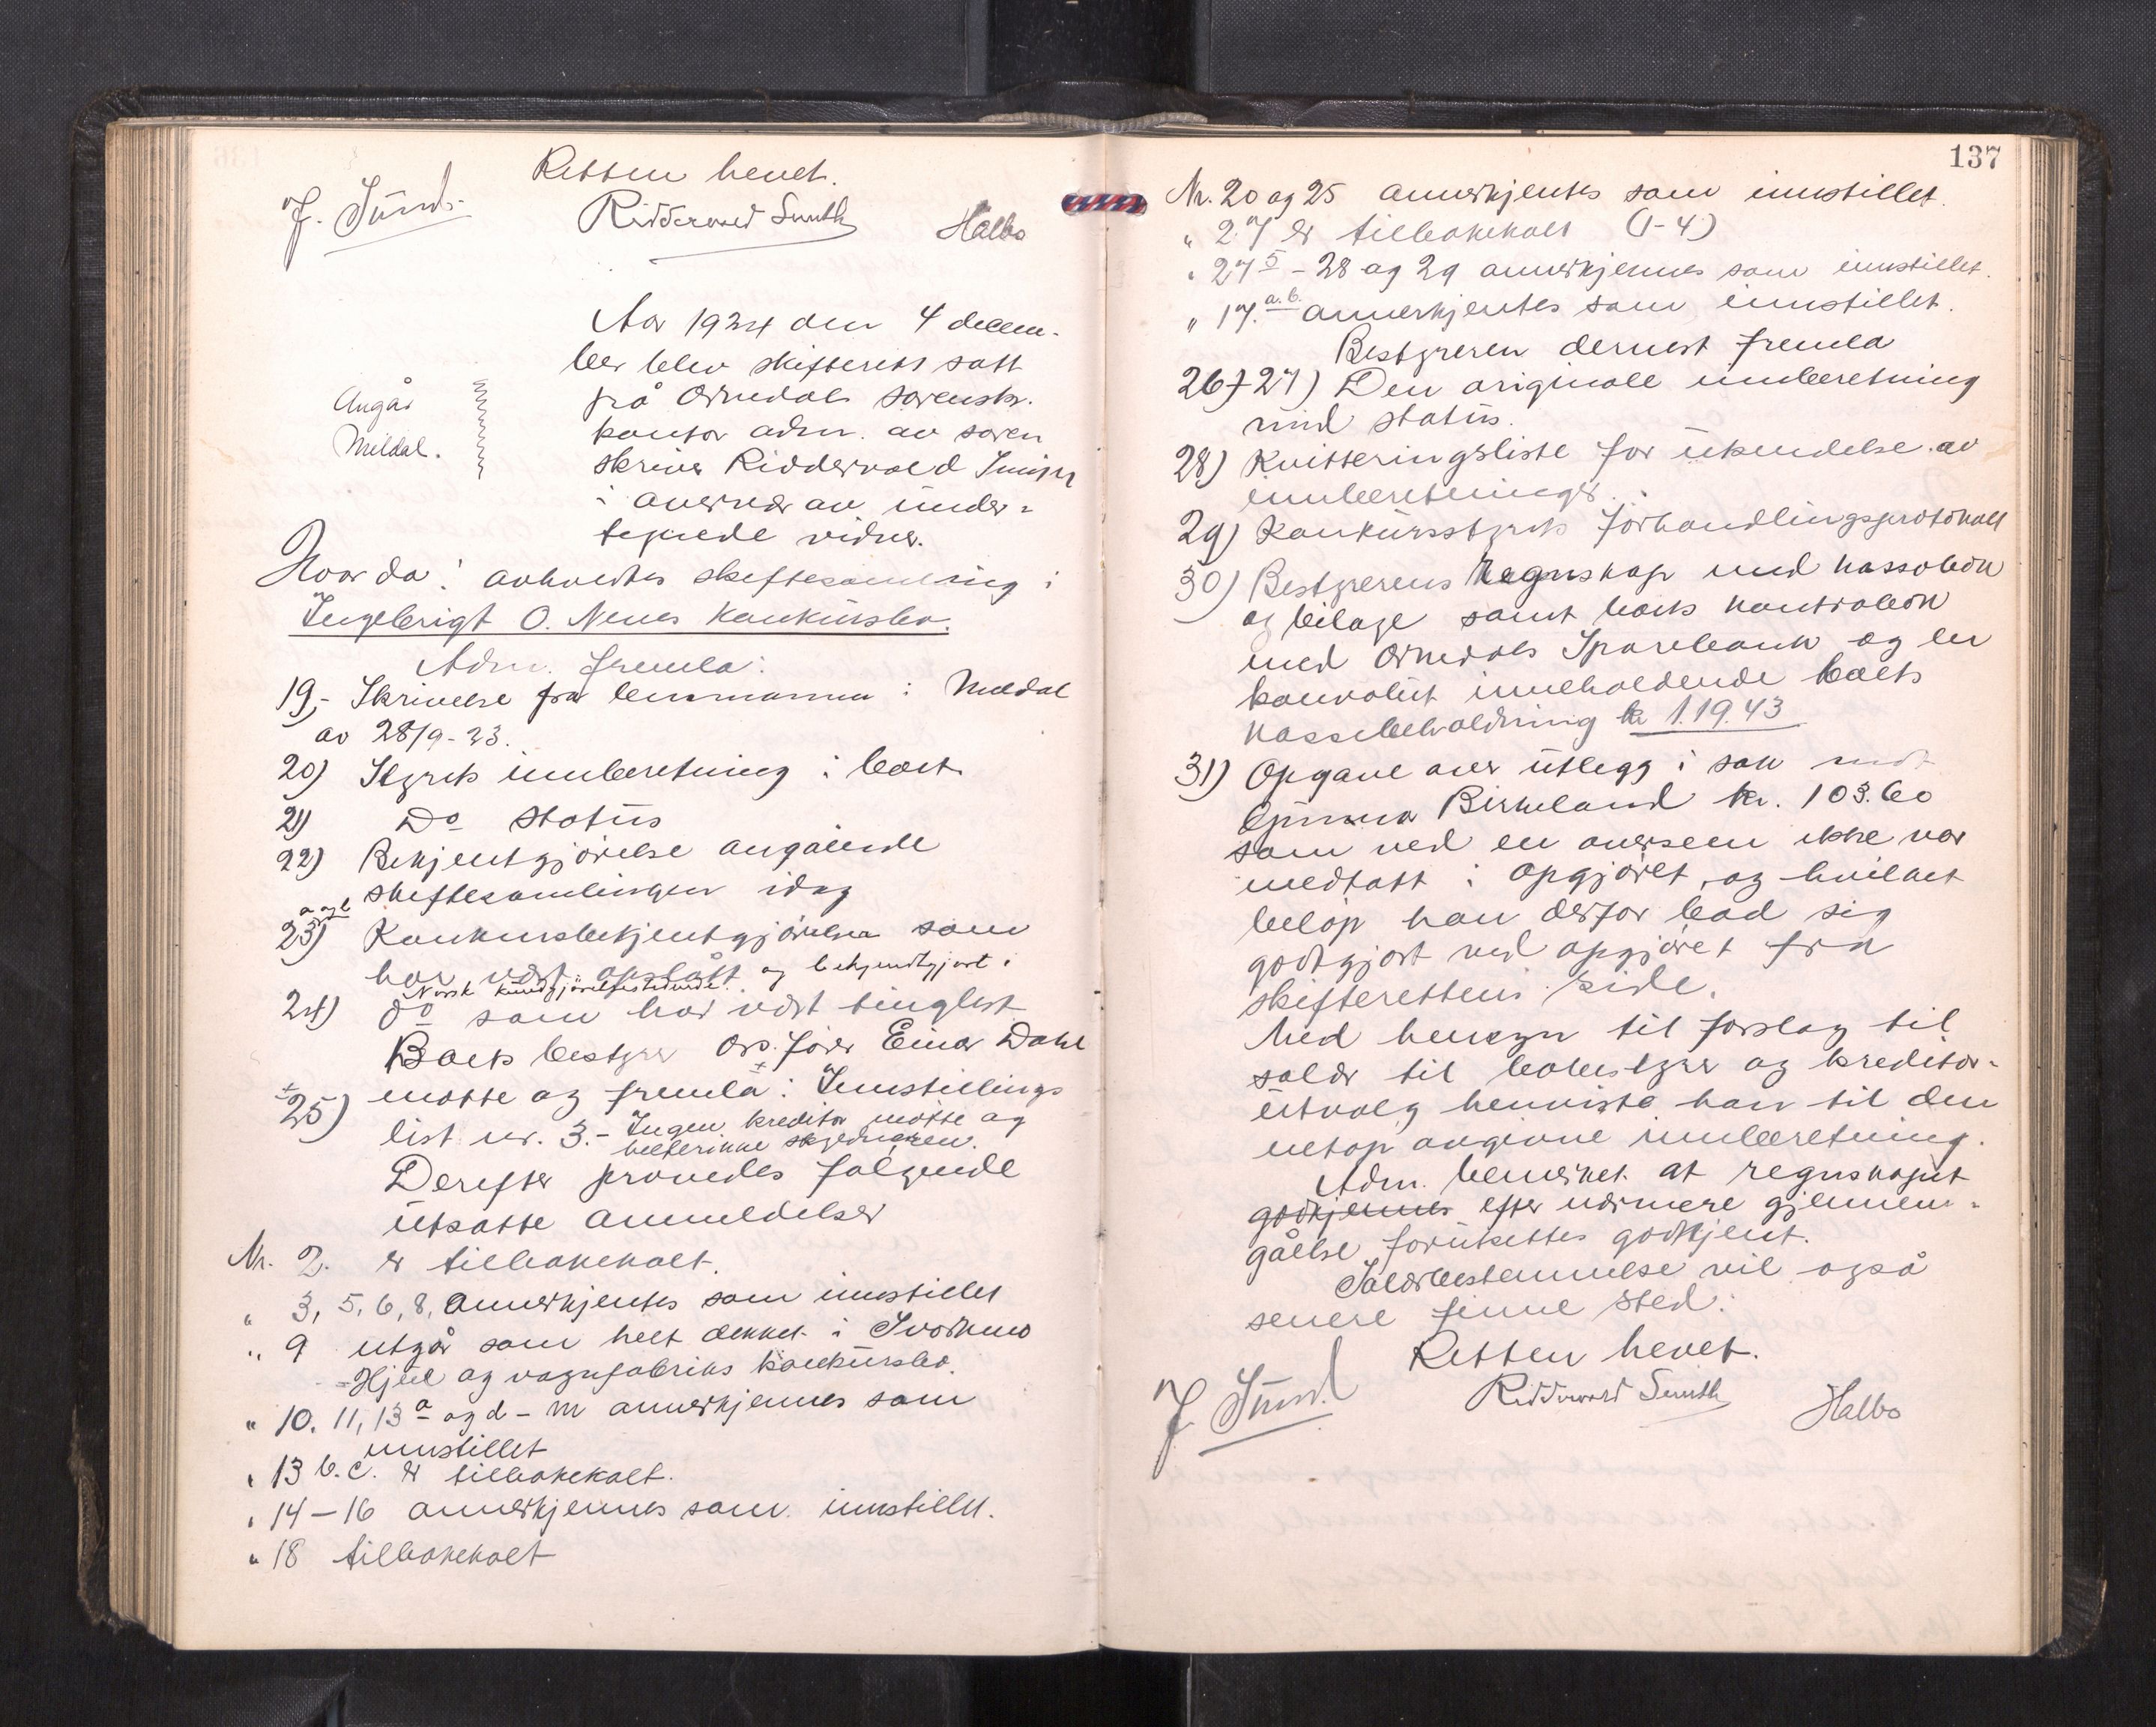 Retten hevet.
J. Sund. Riddervold Smith Halbo
Aar 1924 den 4 decem-
ber blev skifterett satt
på Orkedals sorenskr.
Angår
kontor adm. av soren
Meldal.
skriver Riddervold Smith
i overvær av under-
tegnede vidner.
Hvorda: avholdtes skiftesamling i
Ingebrigt O. Nenes Konkursbo.
Adm. fremla:
19,- Skrivelse fra lensmannen i Meldal
av 28/9-23.
20) Styrets innberetning i boet.
21) Do status
22) Bekjentgjörelse angående
skiftesamlingen idag
a og b
23) Konkursbekjentgjörelse som
har vært opslått og bekjendtgjort i
Norsk kundgjörelsestidende.
24) do som har vært tinglest
Boets bestyrer Ors.förer Einar Dahl
møtte og fremla: Innstillings
25) list nr. 3.- Ingen kreditor møtte og
hellerikke skyldneren.
Derefter prøvedes følgende
utsatte anmeldelser
Nr. 2. er tilbakekalt.
" 3, 5, 6, 8, annerkjentes som innstillet
" 9 utgår som helt dekket i Svorkmo
-Hjul og vognfabriks konkursbo.
" 10. 11, 13 a og d - m annerkjennes som
innstillet
" 13 b. c. er tilbakekalt.
" 14-16 annerkjennes som innstillet.
" 18 tilbakekalt
137
Nr. 20 og 25 annerkjentes som innstillet.
" 27 er tilbakekalt (1-4)
" 27 5 - 28 og 29 annerkjennes som innstillet.
" 17. a. b. annerkjentes som innstillet.
Bestyreren dernest fremla
26+27) Den originale innberetning
med status.
28) Kvitteringsliste for utsendelse av
innberetninger.
29) Konkursstyrets forhandlingsprotokoll
30) Bestyrerens Regnskap med kassabok
og bilage samt boets kontrabok
med Orkedals Sparebank og en
konvolut inneholdende boets
kassebeholdning kr 1.19.43
31) Opgave over utlegg i sak mot
Birkeland kr. 103.60
som ved en overseen ikke var
medtatt i opgjöret, og hvilket
beløp han derfor bad sig
godtgjort ved opgjøret fra
skifterettens side.
Med hensyn til forslag til
salær til bobestyrer og kreditor-
utvalg henviste han til den
netop avgivne innberetning.
Adm. bemerket at regnskapet
godkjennes efter nærmere gjennem-
gåelse forutsettes godkjent.
Salærbestemmelse vil også
senere finne sted.
Retten hevet.
J Sund Riddervold Smith Halbo